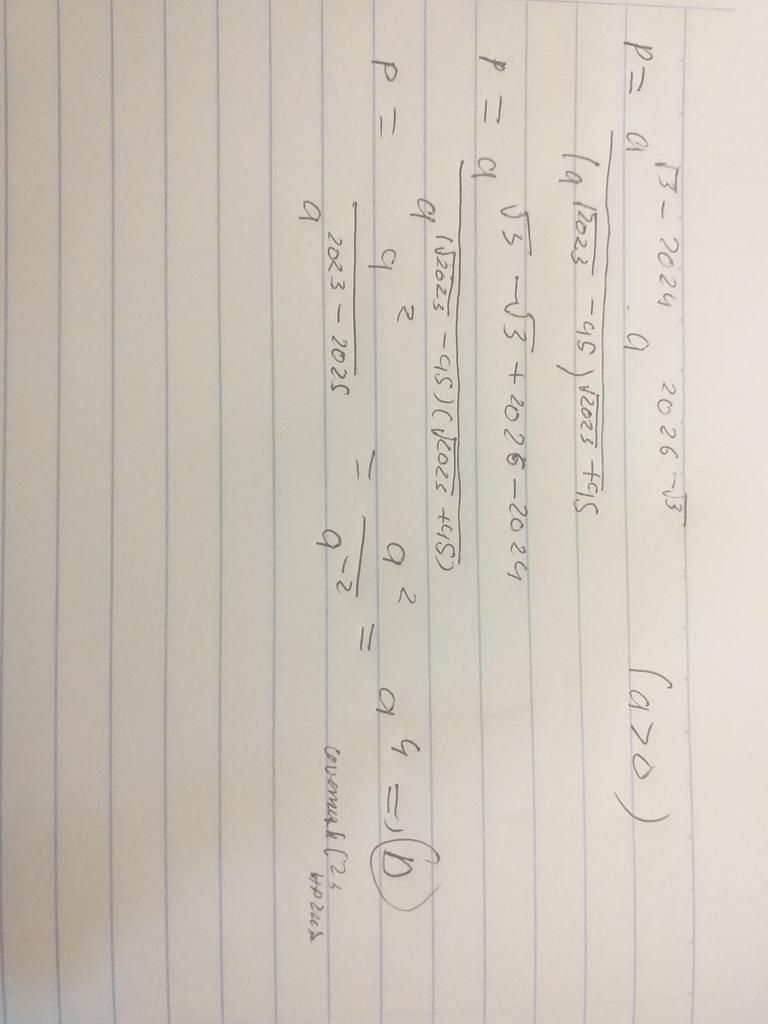 P = a^{√3 - 2024} . a^{2026 - √3} / (a^{√2023 - 45})^{√2023 + 45} (a > 0)
P = a^{√3 - √3 + 2026 - 2024} / a^{(√2023 - 45)(√2023 + 45)}
P = a^2 / a^{2023 - 2025} = a^2 / a^{-2} = a^4 => D